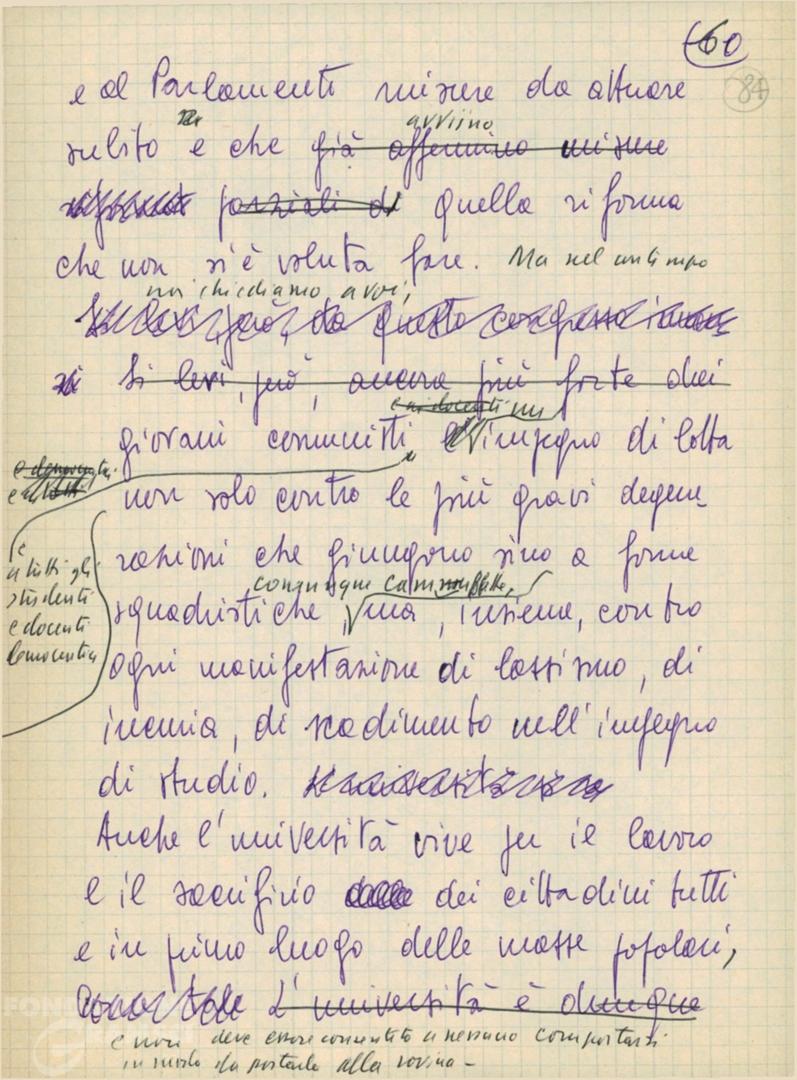 60
84
e al Parlamento misure da attuare
avviino
subito e che già affermino misure
parziali di quella riforma
che non si è voluta fare. Ma nel contempo
noi chiediamo a voi,
Si levi, però, da questo congresso
Si levi, però, ancora più forte dai
e ai docenti un
giovani comunisti l'impegno di lotta
non solo contro le più gravi degene
razioni che giungono sino a forme
comunque camuffate,
squadristiche, ma, insieme, contro
ogni manifestazione di lassismo, di
inerzia, di scadimento nell'impegno
di studio.
Anche l'università vive per il lavoro
e il sacrificio dei cittadini tutti
e in primo luogo delle masse popolari,
L'università è dunque
e non deve essere consentito a nessuno comportarsi
in modo da portarla alla rovina -
e
a tutti gli
studenti
e docenti
democratici
FOND
G